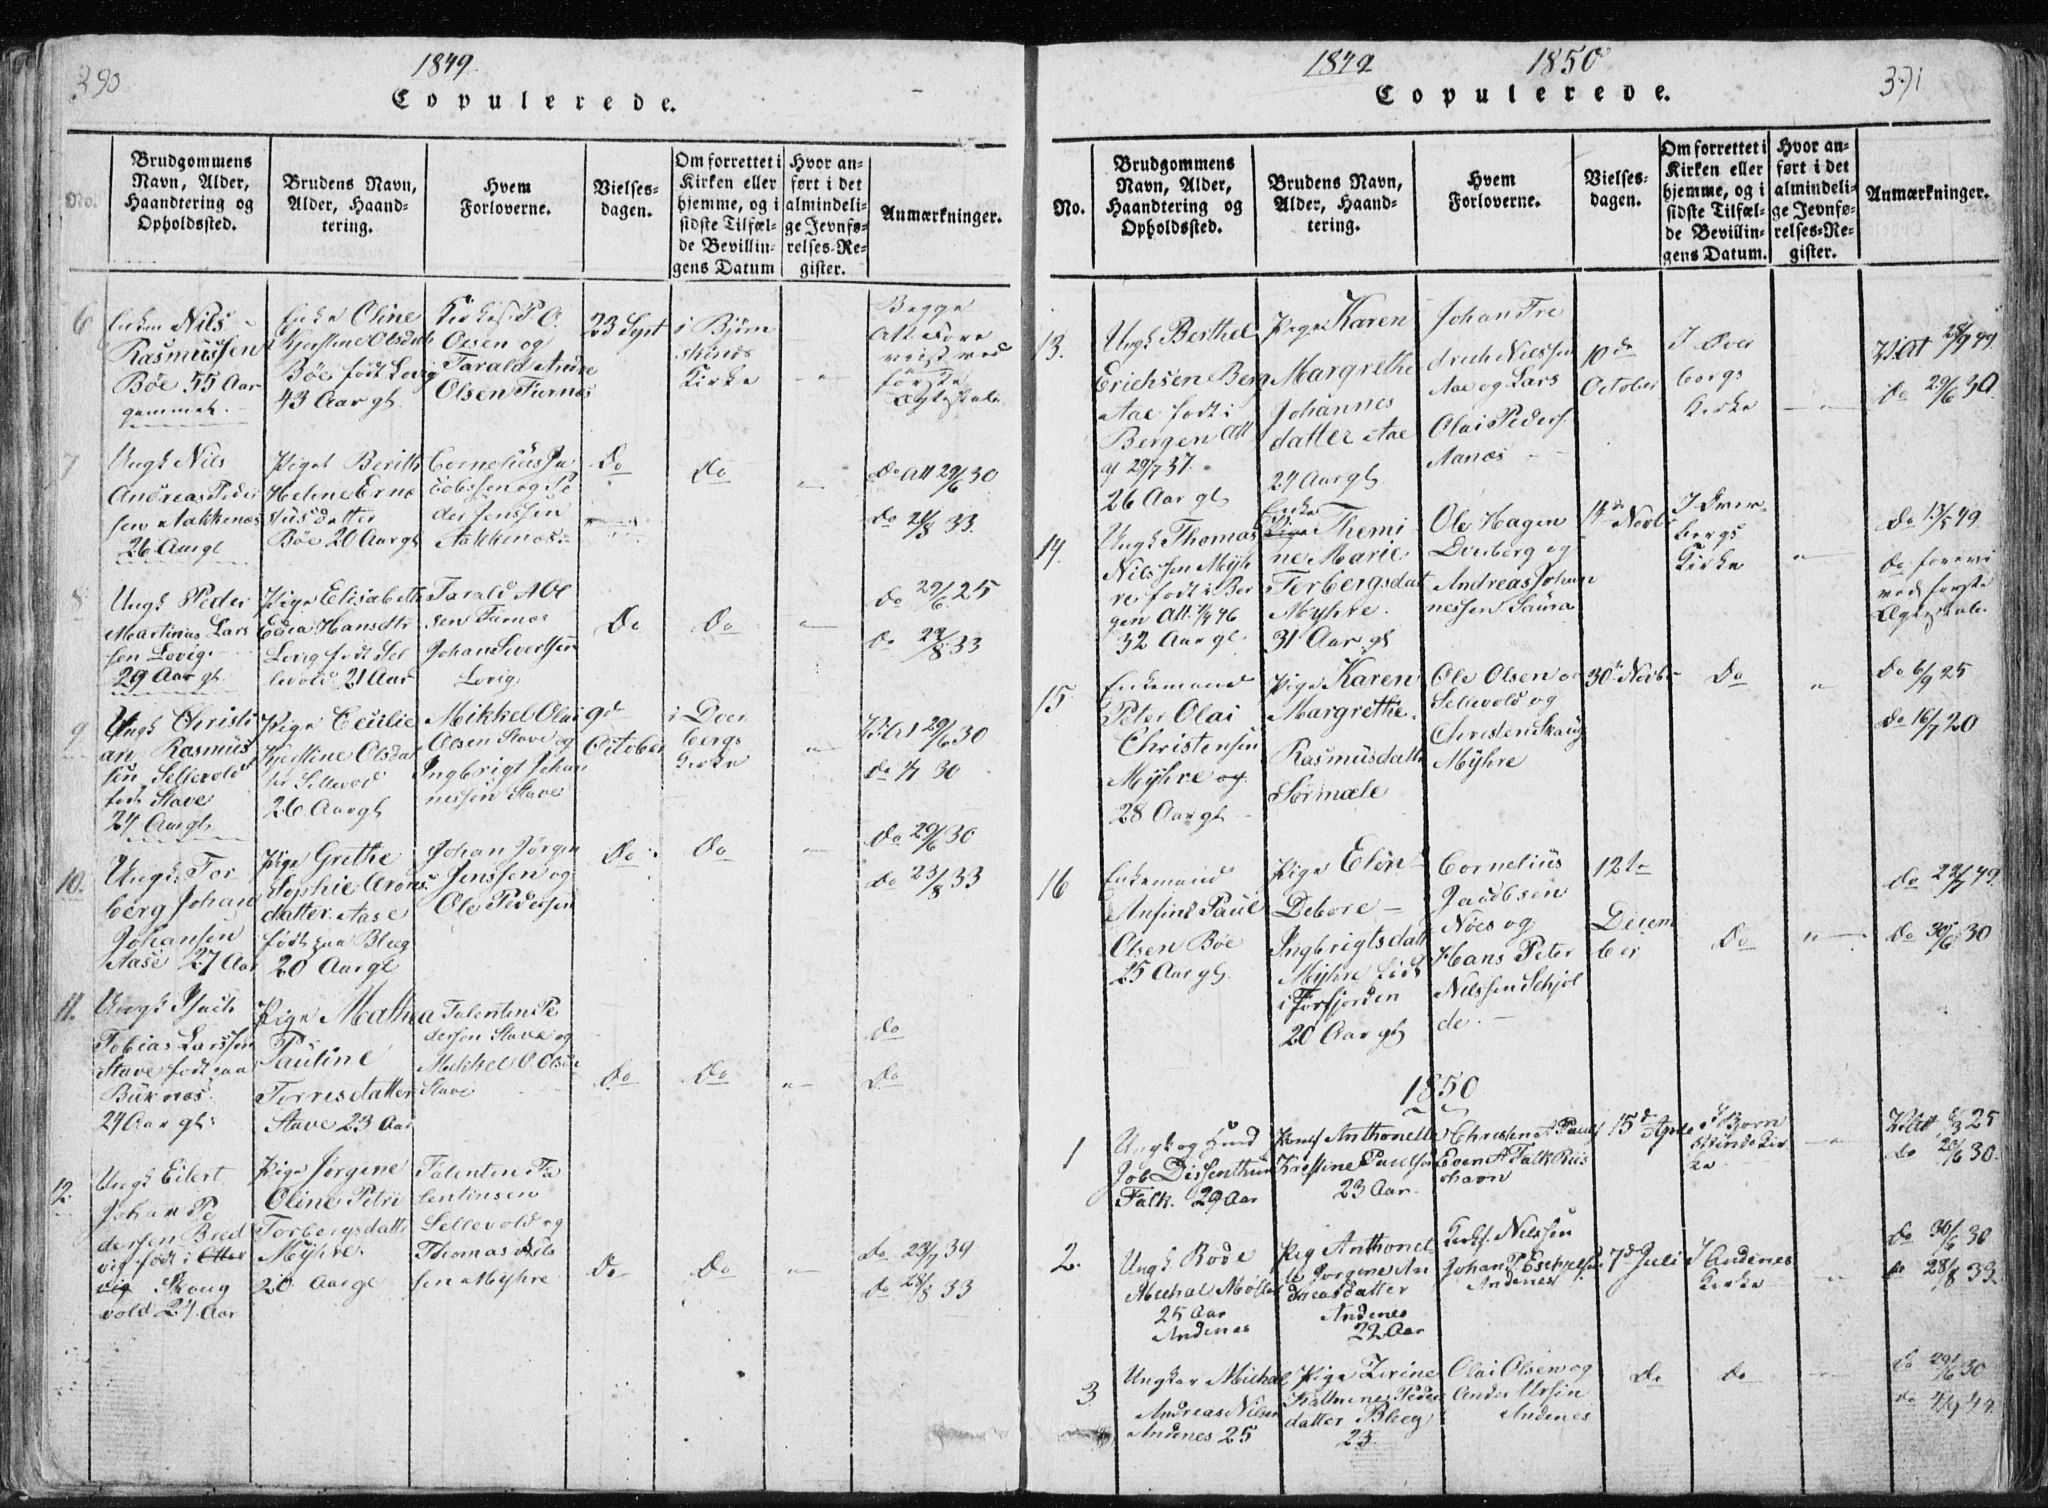 390
1849
Copulerede.
No.
Brudgommens Navn, Alder, Haandtering og Opholdssted.
Brudens Navn, Alder, Haandtering.
Hvem Forloverne.
Vielsesdagen.
Om forrettet i Kirken eller hjemme, og i sidste Tilfælde Bevillingens Datum
Hvor anført i det almindelige Jevnførelses-Register.
Anmærkninger.
6
Nils
Rasmussen
Bøe 55 Aar
gammel.
Enke Oline
Kjerstine Olsdatt
Bøe født Lovig
43 Aar gl.
Olsen og
Tarald Andre
Olsen Furnæs
23 Sept
i Bjørn
skinds
Kirke
Begge
Att. Fore
viist ved
første
Ægteskab.
7
Ungk Nils
Andreas Peder
sen Aakkenæs
26 Aar gl
Pigen Berith
Helene Ernæ
stusdatter
Bøe 20 Aar gl
Cornelius Ja
cobsen og Pe
der Jenssen
Aakkenæs.
Do
Do
Do Att 29/6 30
Do 21/8 33.
8
Ungk Peder
Martinus Lars
sen Lovig
29 Aar gl.
Pige Elisabeth
Edea Hansdtr
Lovig født Sel
levold 21 Aar
Tarald A Ol
sen Furnæs
Johan Sivertsen
Lovig
Do
Do
Do 29/6 25
Do 29/8 33
9
Ungk Christi
an Rasmus
sen Sellevold
født Stave
24 Aar gl
Pige Cecilie
Kjerstine Olsdat
ter Sellevold
26 Aar gl
Mikkel Olai
Olsen Stave og
Ingbrigt Johan
nessen Stave
9d
October
i Dver
bergs
Kirke
V. Att 29/6 30
Do 1/7 30
10.
Ungk Tor
berg Johan
Johansen
Aase 27 Aar
Pige Grethe
Sophie Arons
datter Aase
født paa Bleeg
20 Aar gl
Johan Jørgen
Jenssen og
Ole Pedersen
Do
Do
Do 29/6 30
Do 23/8 33
11.
Ungk Isach
Tobias Larssen
Stave født paa
Buknæs.
24 Aar gl.
Pige Mathea
Pauline
Torresdatter
Stave 23 Aar
Talentin Pe
dersen Stave og
Mikkel O. Olsen
Stave
Do
Do
Do
Do
12.
Ungk Eilert
Johan Pe
dersen Bred
vig født i Otter
vig Skoug
vold 24 Aar
Pige Jørgene
Oline Petri
Torbergsdattr
Myhre
20 Aar gl
Talentin Ta
lentinsen
Sellevold og
Thomas Nils
sen Myhre
Do
Do
Do 23/7 39
Do 28/8 33
1849
1850
391
Copulerede.
No.
Brudgommens Navn, Alder, Haandtering og Opholdssted.
Brudens Navn, Alder, Haandtering.
Hvem Forloverne.
Vielsesdagen.
Om forrettet i Kirken eller hjemme, og i sidste Tilfælde Bevillingens Datum.
Hvor anført i det almindelige Jevnførelses-Register.
Anmærkninger.
13.
Ungk Berthel
Erichsen Berg
Aae født i
Bergen Att
af 29/7 37.
26 Aar gl
Pige Karen
Margrethe
Johannes
datter Aae
24 Aar gl
Johan Fre
drich Nielssen
Aae og Lars
Olai Peders.
Aanæs
10de
October
I Dver
bergs
Kirke
V. Att 28/9 49.
Do 29/6 30.
14.
Ungk Thomas
Nilssen Myh
re født i Ber
gen Att. 7/9 46
32 Aar gl.
Enke
Pige Themi
ne Marie
Torbergsdat
Myhre.
31 Aar gl
Ole Hagen
Dverberg og
Andreas Johan
nessen Saura
14d Novbr
I Dver
bergs
Kirke
Do 13/5 49.
Do forevi
ved første
Ægteskab.
15
Enkemand
Peter Olai
Christensen
Myhre og
28 Aar gl
Pige Karen
Margrethe
Rasmusdattr
Sørmæle
Ole Olsen
Sellevold og
Christen Skoug
Myhre
30te Novbr
Do
Do 6/9 25
Do 16/7 20
16
Enkemand
Ansind Paul
Olsen Bøe
25 Aar gl.
Pige Elen
Debore
Ingbrigtsdatt
Myhre født
i Forfjorden
20 Aar gl
Cornelius
Jacobsen
Nøes og
Hans Peter
Nilssen Schjol
de.
12te
Decem
ber
Do
Do 22/7 49
Do 30/6 30
1850
1
Ungk og
Job Dissenthun
Falk. 29 Aar
Anthonette
Kristine Paulsen
23 Aar.
Christen A Pauls
Even A Falk Riis
havn
15d April
I Bjørn
skinds Kir
ke
V. Att 25
Do 29/6 30.
2.
Ungk Bode
Michal
25 Aar
Andenes
Pig Anthonet
te Jørgine An
dreasdatter
Andenes
22 Aar
Nilssen
Johan P
Andenes
7d Juli
I Andenes
Kirke
Do 30/6 30
Do 28/8 33.
3
Ungkar Michal
Andreas Nilsen
Andenes 25
Pige Zerine
Peder
datter Bleeg
23
Olai Olsen og
Ander Ursin
Andenes
Do
Do
Do 29/6 30
Do